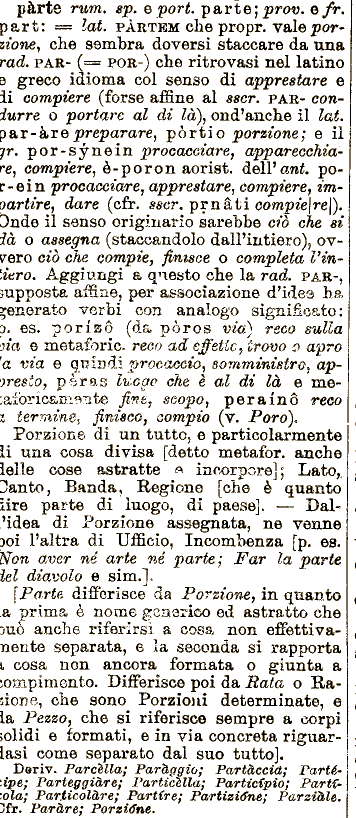 pàrte rum. sp. e port. parte; prov. e fr.
part: = lat. PÀRTEM che propr. vale por-
zione, che sembra doversi staccare da una
rad. PAR- (= POR-) che ritrovasi nel latino
e greco idioma col senso di apprestare e
di compiere (forse affine al sscr. PAR- con-
durre o portare al di là), ond'anche il lat.
par-àre preparare, pòrtio porzione; e il
gr. por-sýnein procacciare, apparecchia-
re, compiere, è-poron aorist. dell'ant. po-
r-ein procacciare, apprestare, compiere, im-
partire, dare (cfr. sscr. pṛnâti compie|re|).
Onde il senso originario sarebbe ciò che si
dà o assegna (staccandolo dall'intiero), ov-
vero ciò che compie, finisce o completa l'in-
tiero. Aggiungi a questo che la rad. PAR-,
supposta affine, per associazione d'idee ha
generato verbi con analogo significato:
p. es. porizô (da pòros via) reco sulla
via e metaforic. reco ad effetto, trovo o apro
la via e quindi procaccio, somministro, ap-
presto, pèras luogo che è al di là e me-
taforicamente fine, scopo, perainô reco
a termine, finisco, compio (v. Poro).
Porzione di un tutto, e particolarmente
di una cosa divisa [detto metafor. anche
delle cose astratte e incorpore]; Lato,
Canto, Banda, Regione [che è quanto
dire parte di luogo, di paese]. — Dal-
l'idea di Porzione assegnata, ne venne
poi l'altra di Ufficio, Incombenza [p. es.
Non aver né arte né parte; Far la parte
del diavolo e sim.].
[Parte differisce da Porzione, in quanto
la prima è nome generico ed astratto che
può anche riferirsi a cosa non effettiva-
mente separata, e la seconda si rapporta
a cosa non ancora formata o giunta a
compimento. Differisce poi da Rata o Ra-
zione, che sono Porzioni determinate, e
da Pezzo, che si riferisce sempre a corpi
solidi e formati, e in via concreta riguar-
dasi come separato dal suo tutto].
Deriv. Parcèlla; Paràggio; Partàccia; Parté-
cipe; Parteggiàre; Particèlla; Particípio; Partí-
cola; Particolàre; Partíre; Partizióne; Parziàle.
Cfr. Paràre; Porzióne.